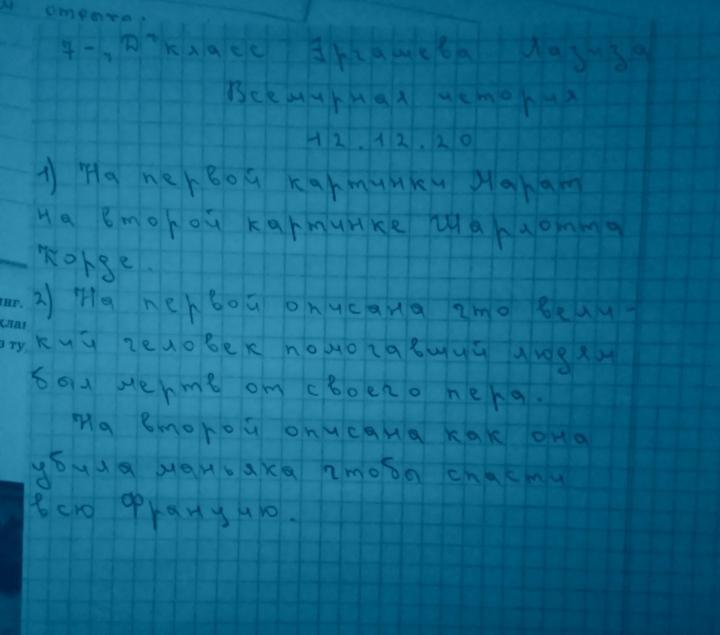 отрыто.
7-"D" класс Эргашева Лазиза
Всемирная история
12.12.20
1) На первой картинки Марат
на второй картинке Шарлотта
Корде.
2) На первой описана что вели-
кий человек помогавший людям
был мертв от своего пера.
На второй описана как она
убила маньяка чтобы спасти
всю Францию.